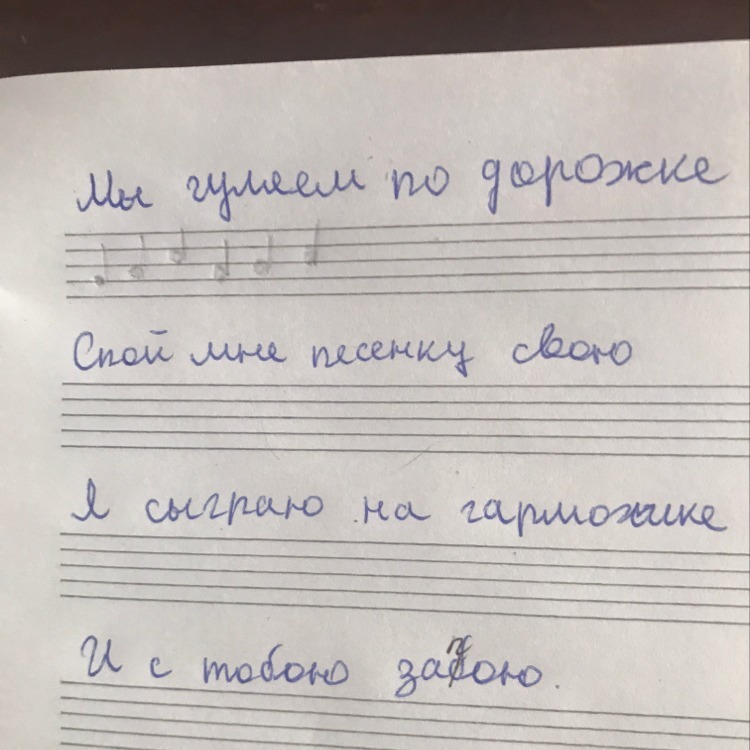 Мы гуляем по дорожке
Спой мне песенку свою
Я сыграю на гармошке
И с тобою запою.